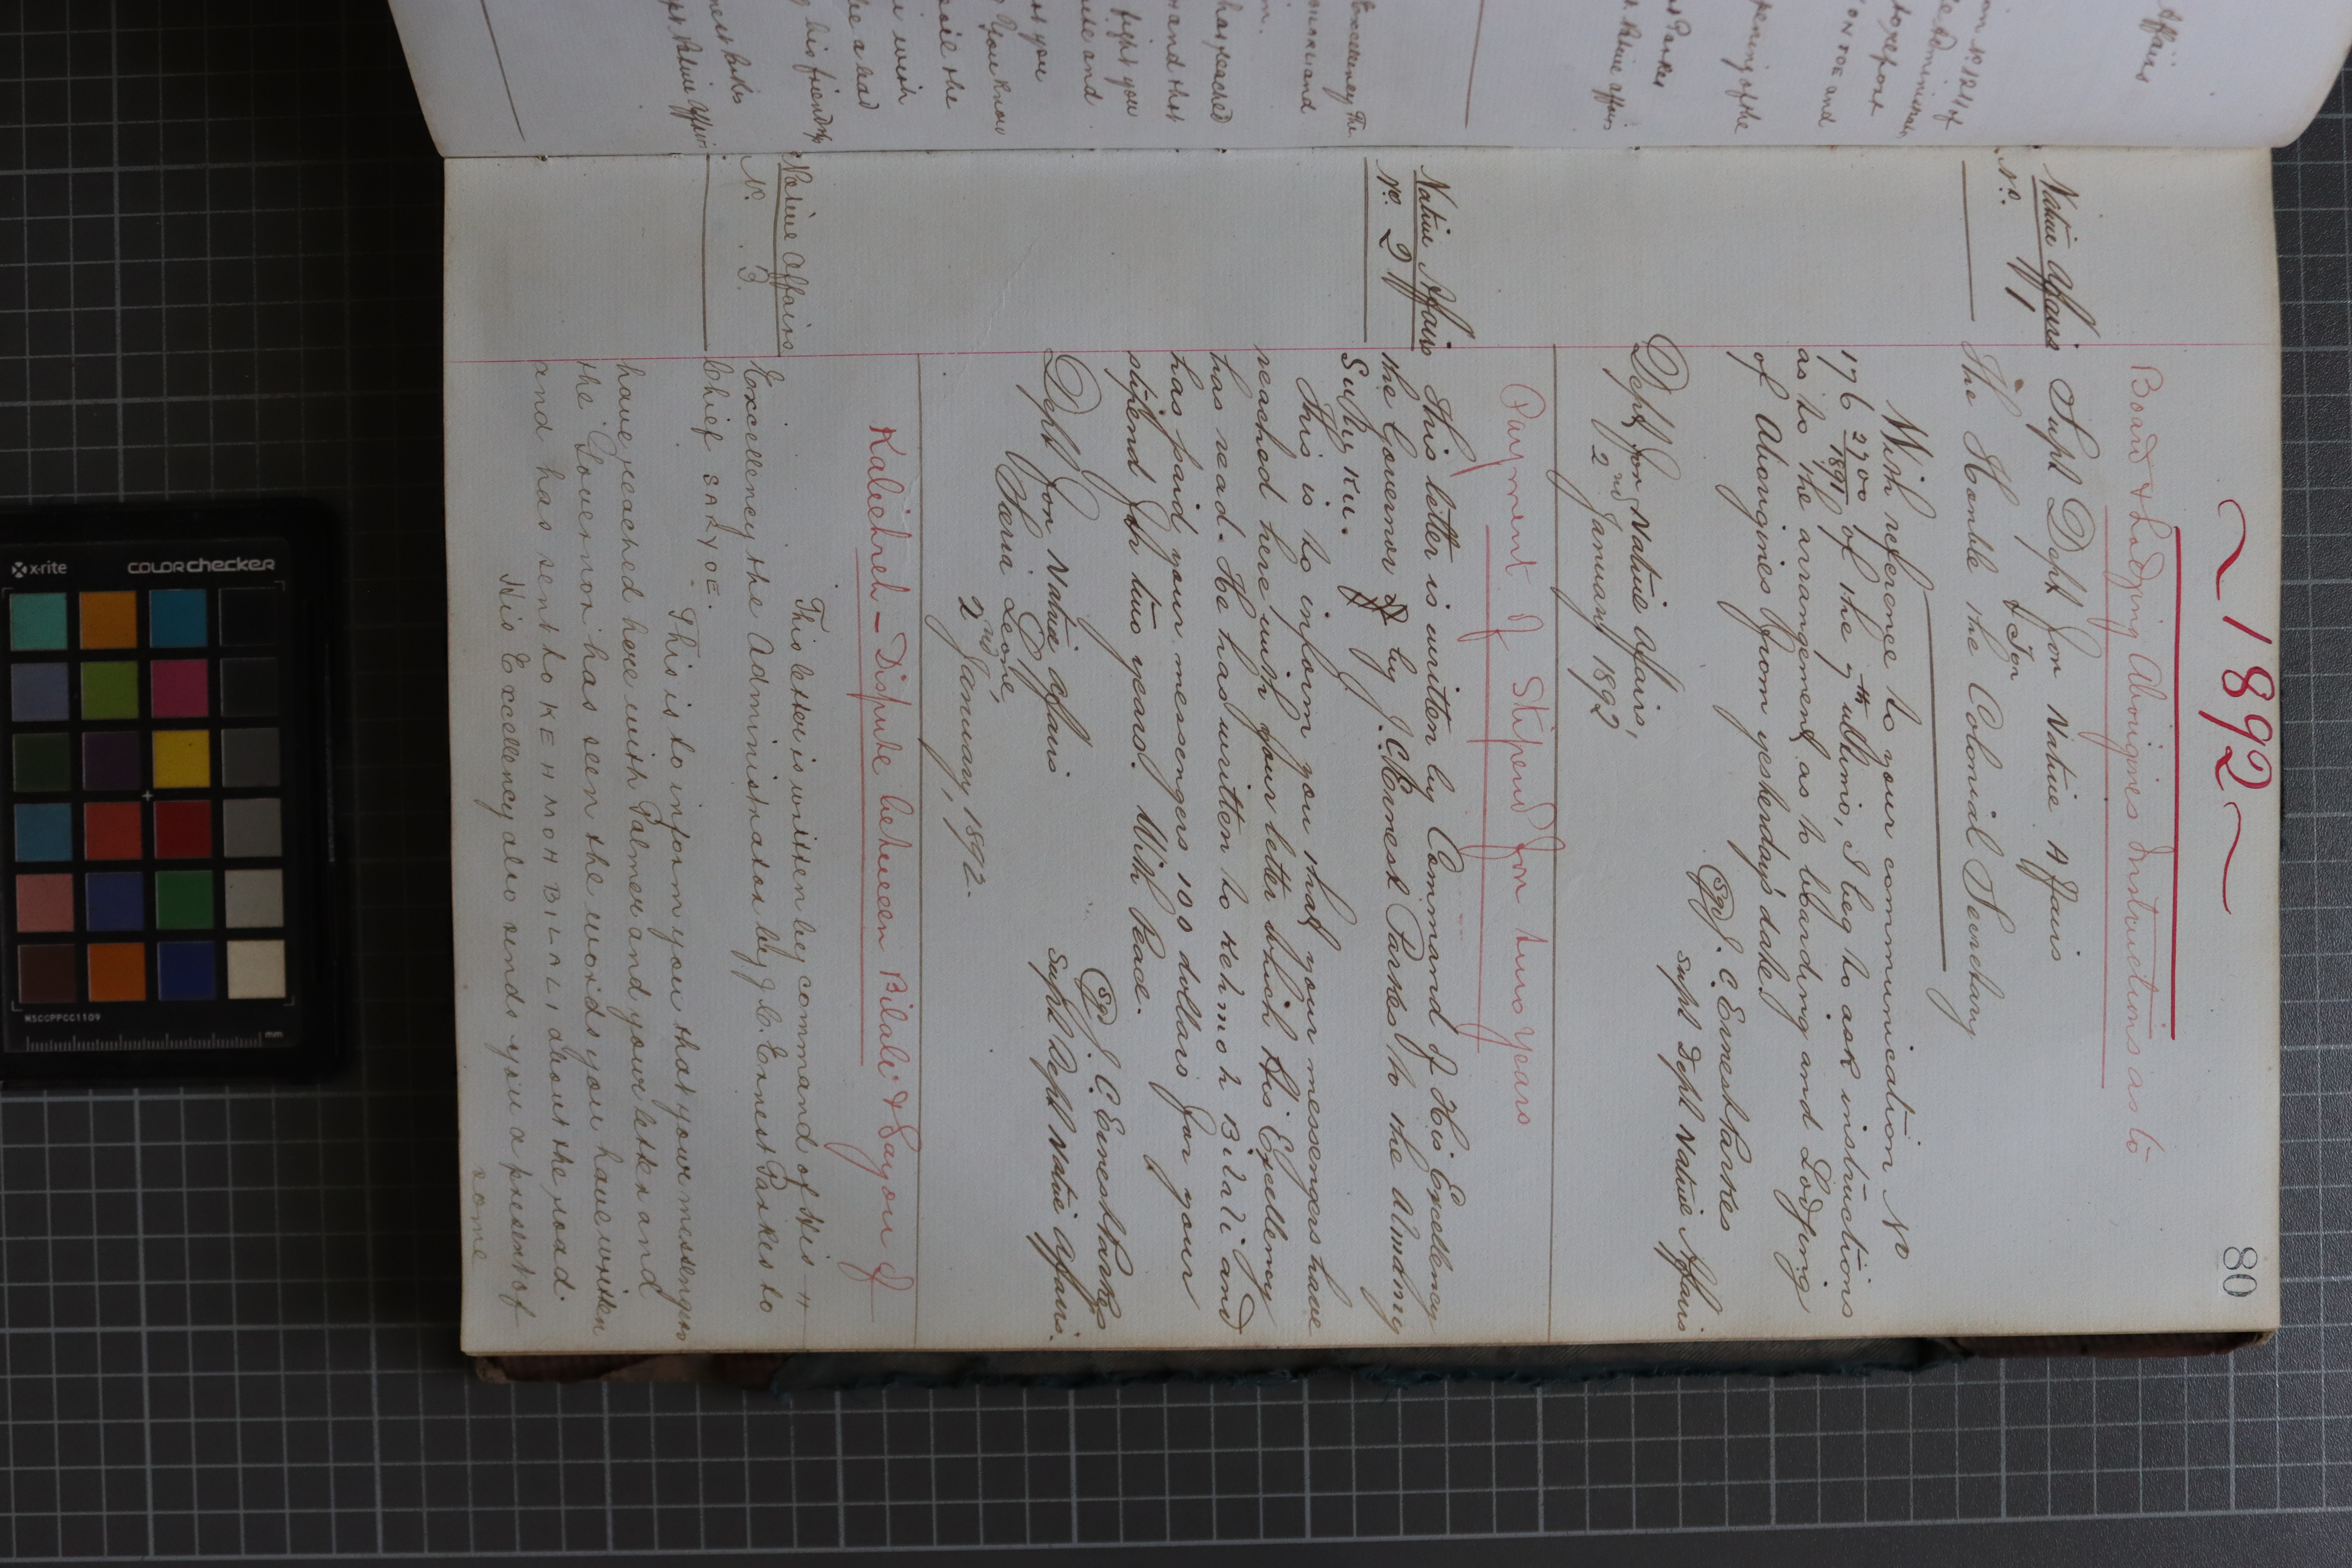 80
~ 1892 ~
Board & Lodging Aborigines Instructions as to
Native Affairs
No. 1
Supt Dept for Native Affairs
to
The Honble the Colonial Secretary
With reference to your communication No
176 2700/1891 of the 7th ultimo, I beg to ask instructions
as to the arrangement as to boarding and Lodging
of Aborigines from yesterday's date.
(Sgd) J. C. Ernest Parkes
Supt Dept Native Affairs
Dept for Native Affairs,
2nd January 1892
Payment of Stipend for two years
Native Affairs
No. 2
This letter is written by Command of His Excellency
the Governor by J. C. Ernest Parkes to the Almamy
Suluku.
This is to inform you that your messengers have
reached here with your letter which His Excellency
has read. He has written to Kehmoh Bilali and
has paid your messengers 100 dollars for your
stipend for two years. With Peace.
(Sgd) J. C. Ernest Parkes
Supt Dept Native Affairs.
Dept for Native Affairs
Sierra Leone,
2nd January, 1892.
Kalieheh - Dispute between Bilali & Sayou of
Native Affairs
No. 3.
This letter is written by command of His
Excellency the Administrator by J. C. Ernest Parkes to
Chief
This is to inform you that your messengers
have reached here with Palmer and your letter and
the Governor has seen the words you have written
and has sent to KEHMOH BILALI about the road.
His Excellency also sends you a present of
some
Affairs
No 1214 of
Administrator
to report
and
opening of the
Parkes
Native Affairs
Excellency the
and
has reached
and that
fight you
and
you
you know
the
with
a bad
his friendship
Native Affairs
x-rite
colorchecker
MSCCPPCC1109
mm